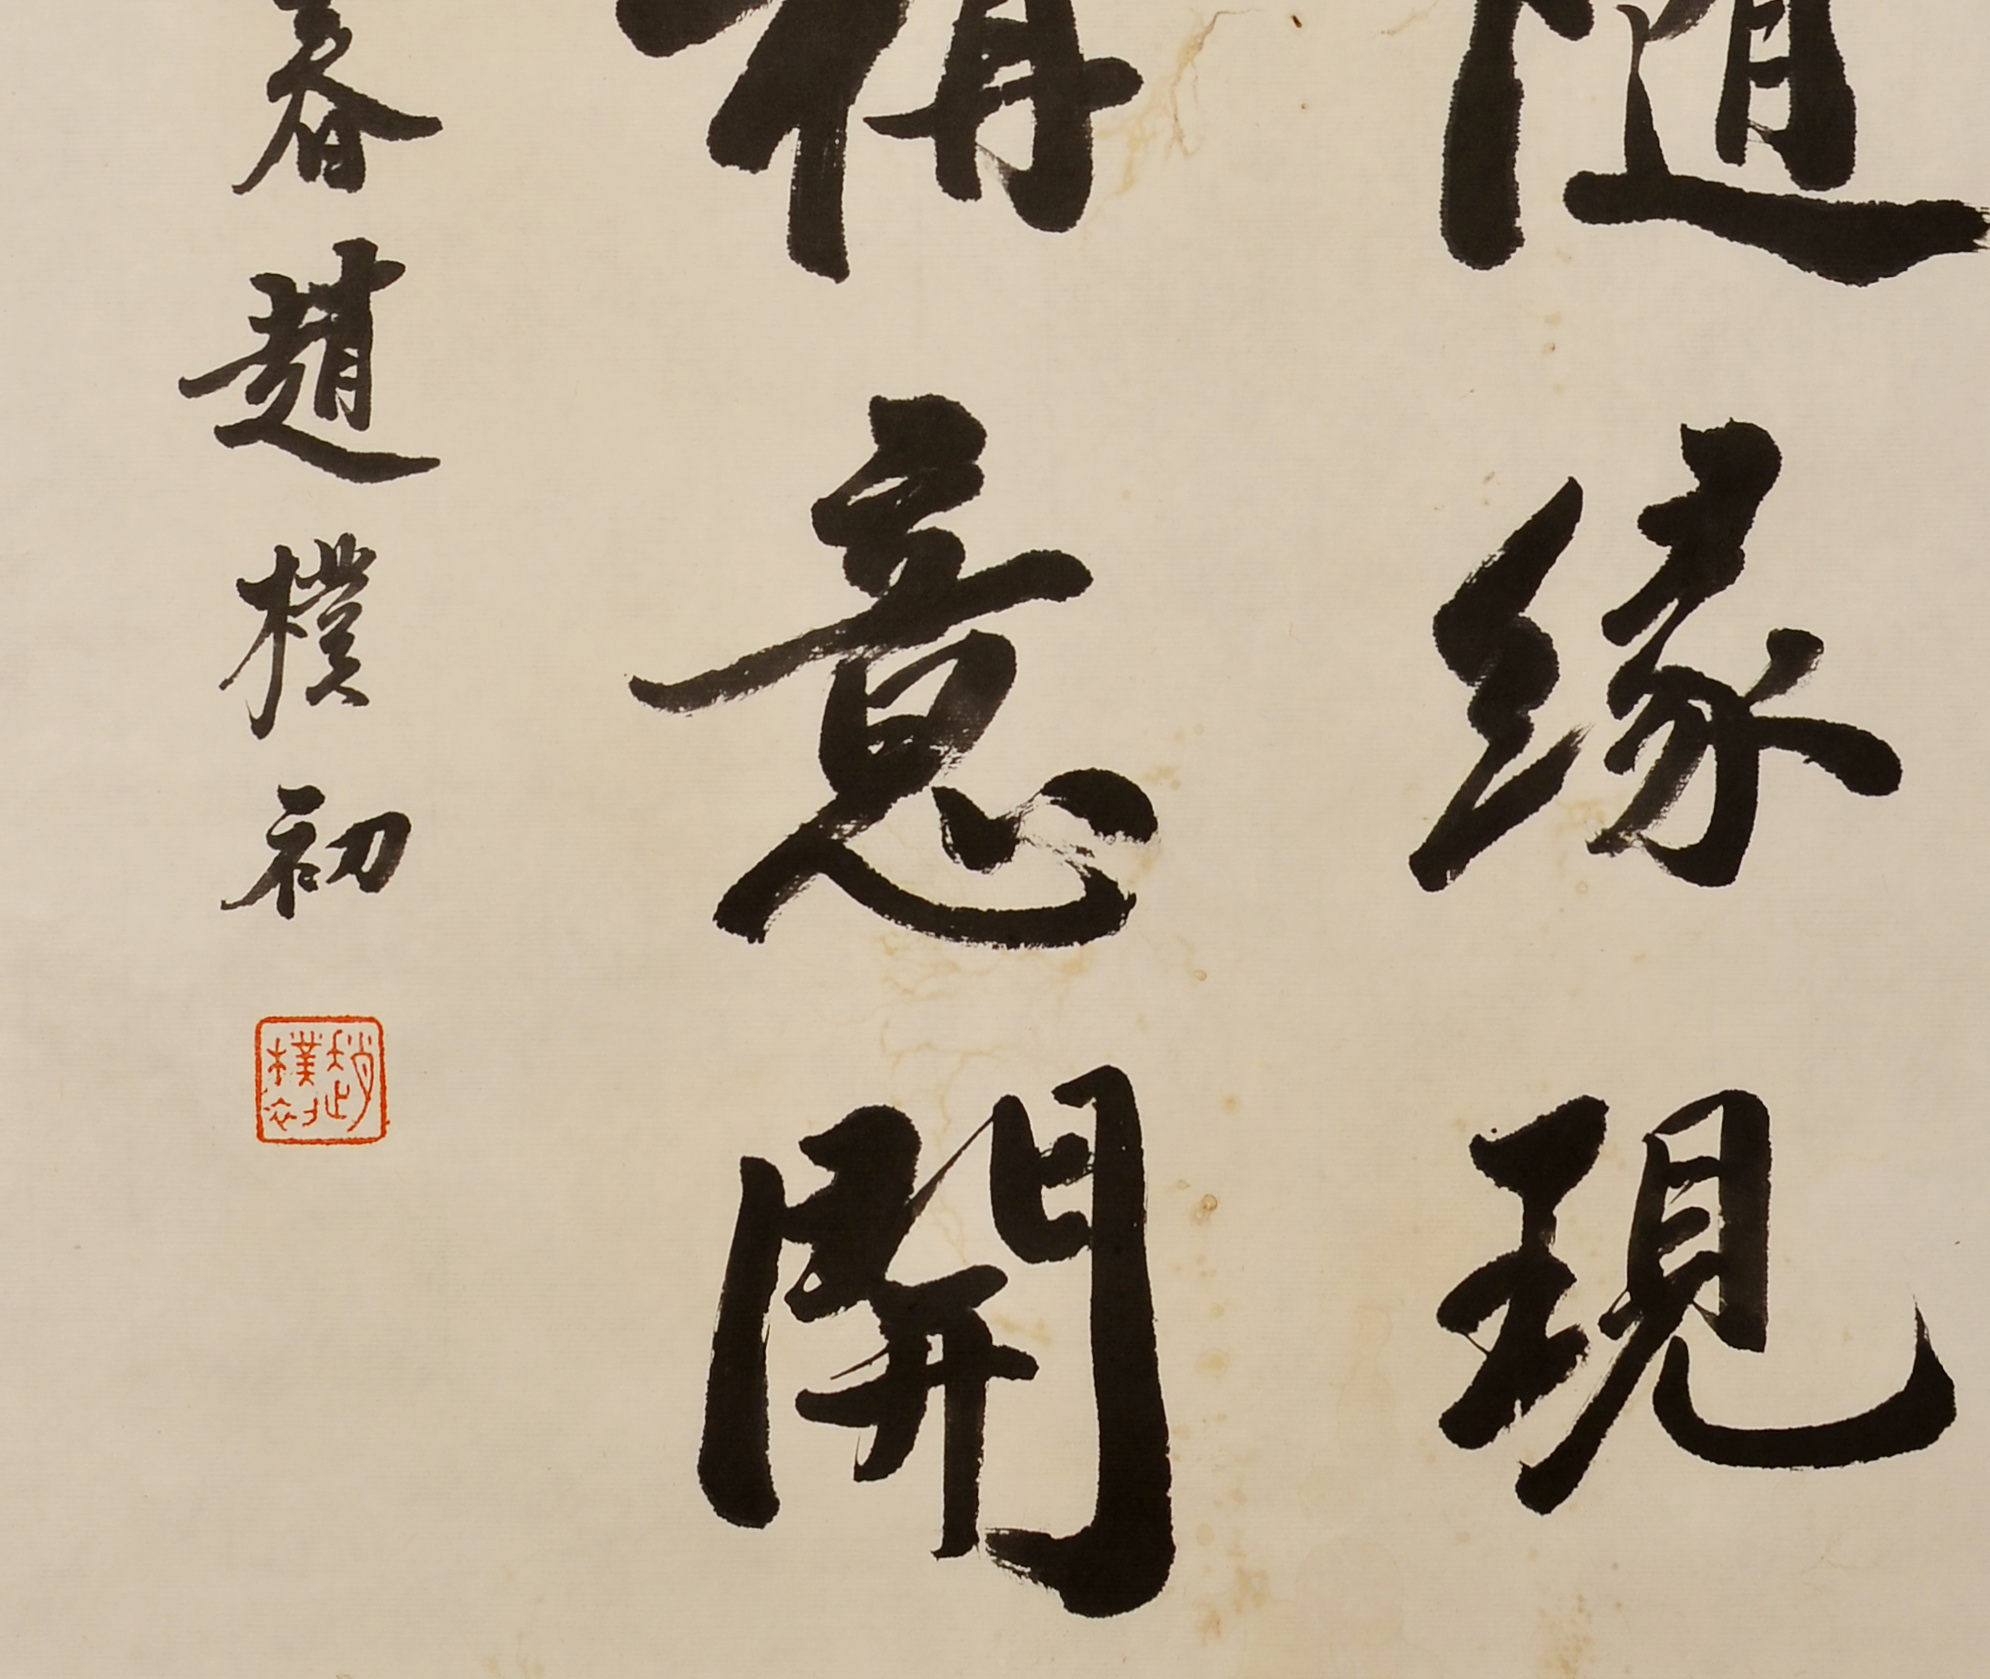 随緣現
稱意開
春趙樸初
趙樸初